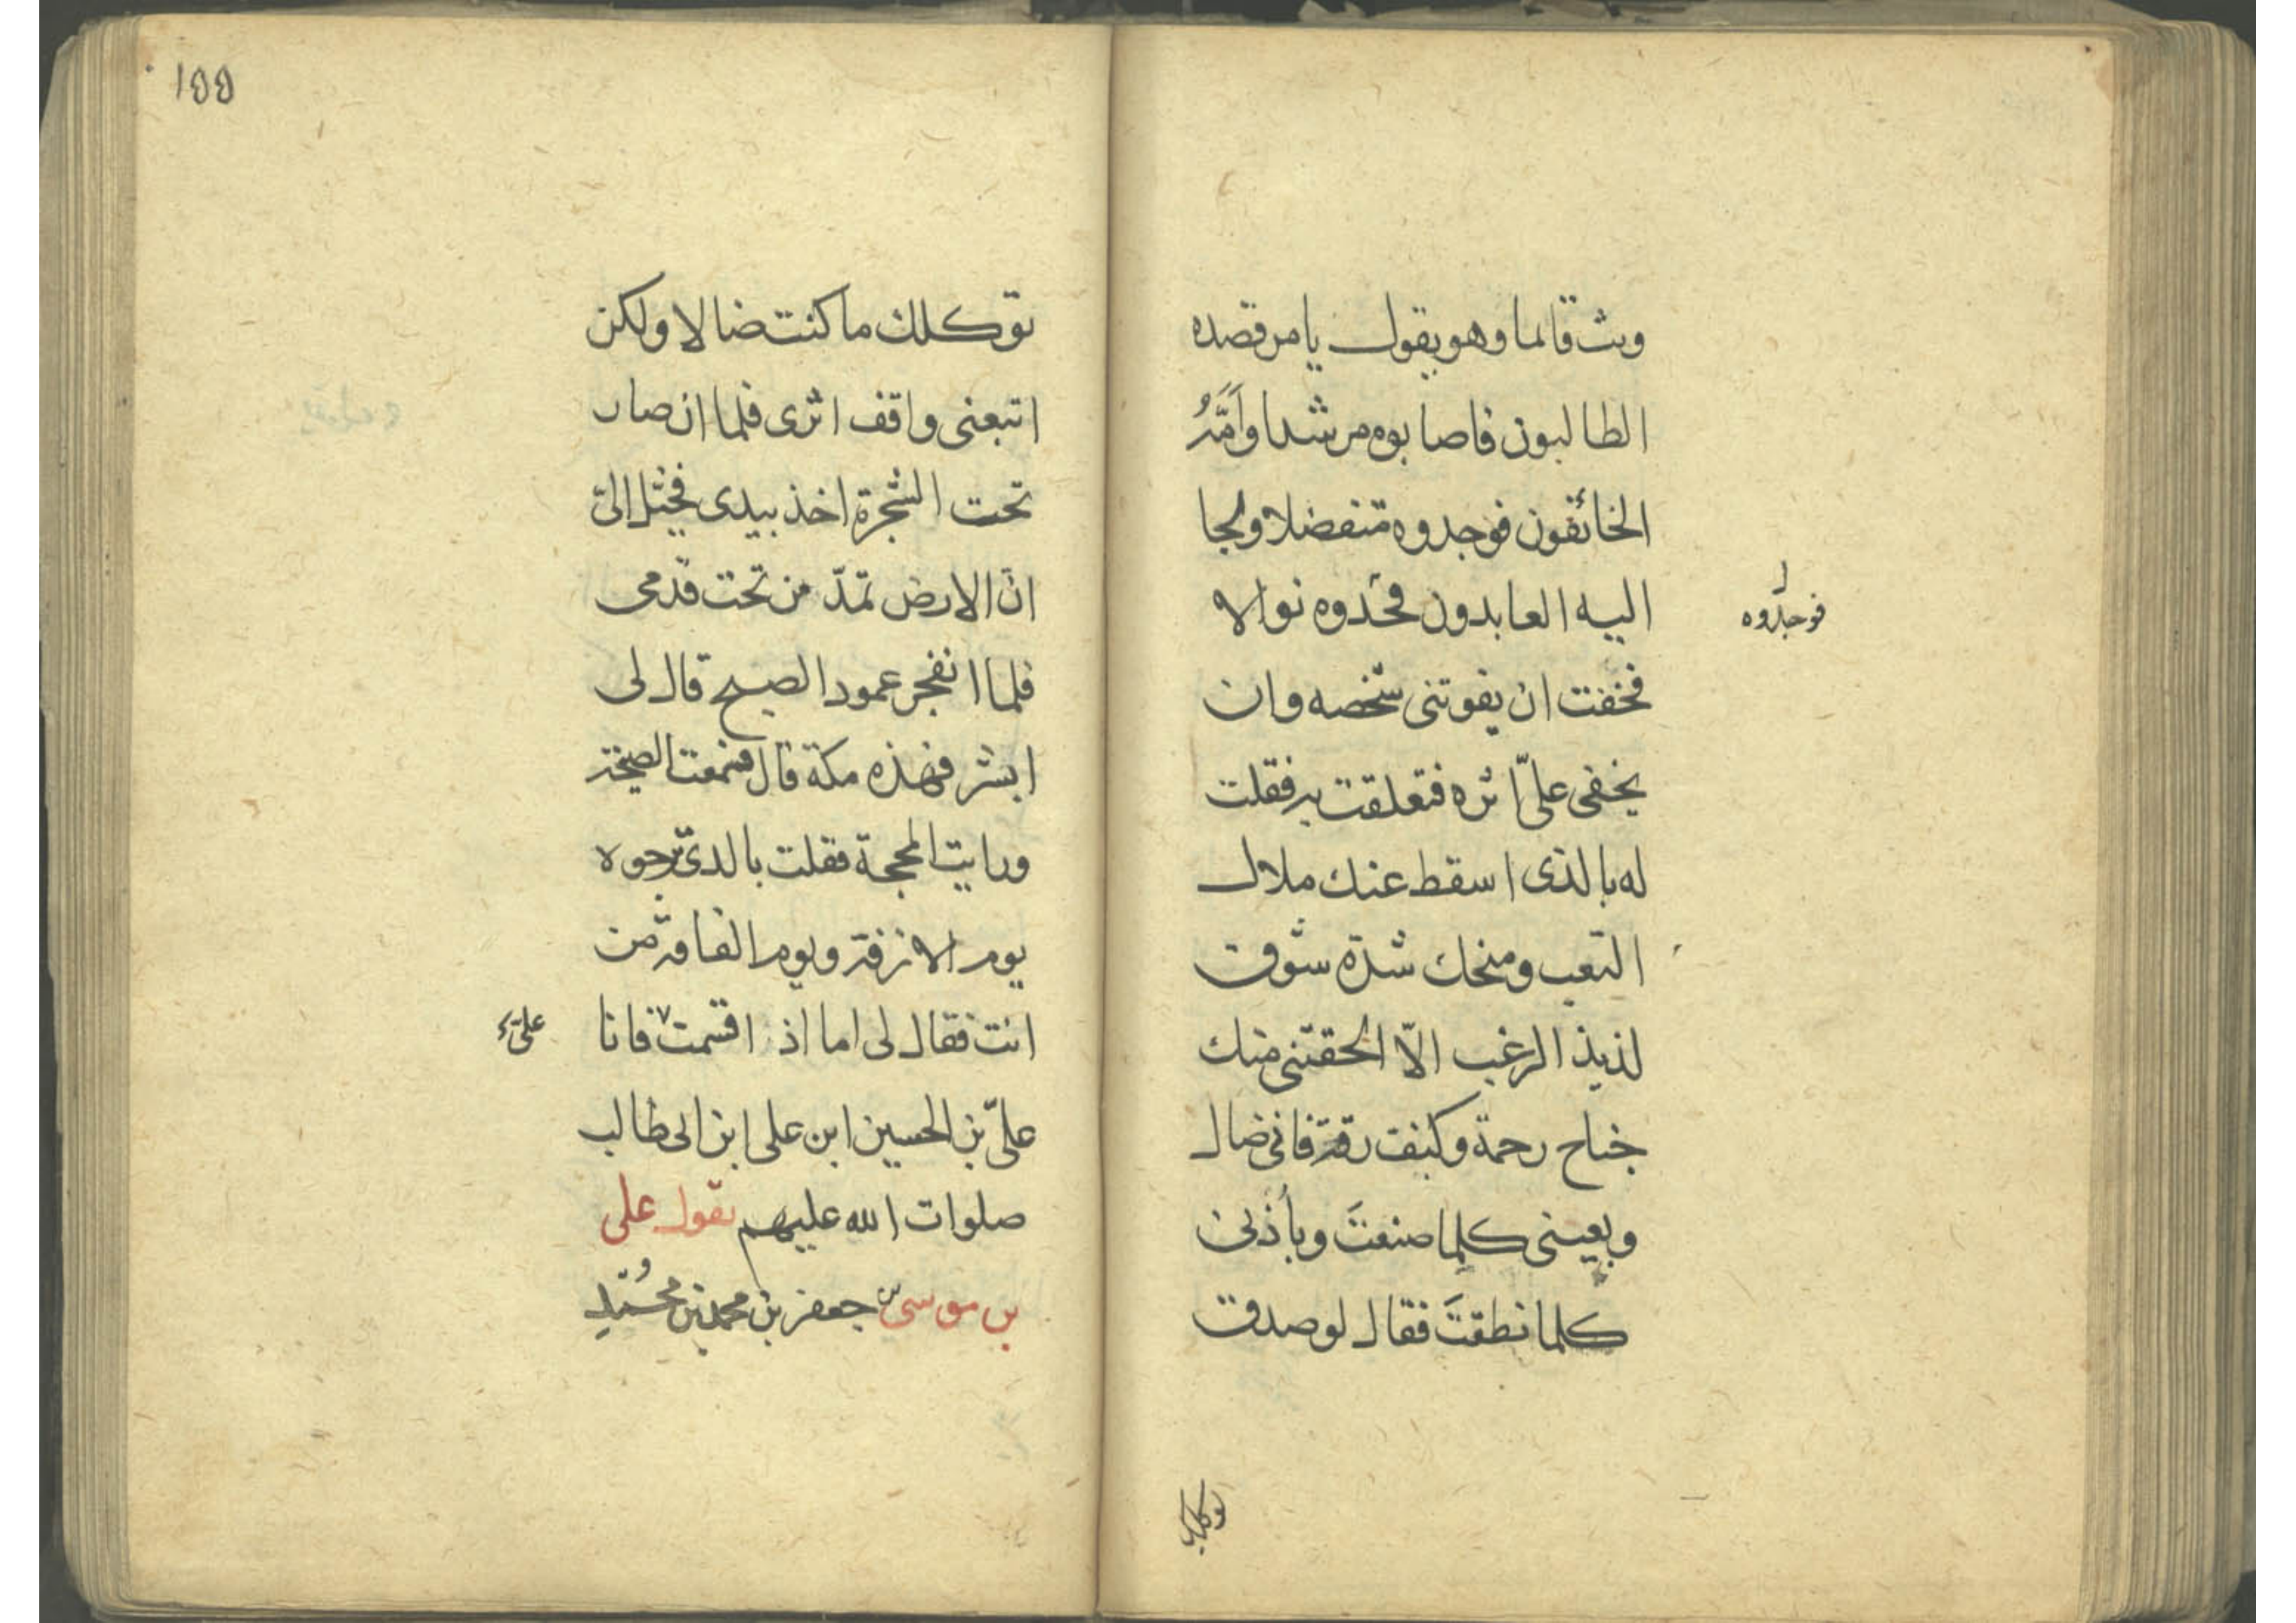 وثب قائما وهو يقول يا من قصده
الطالبون فاصابوه مرشدا وأَمَّهُ
الخائفون فوجدوه متفضلا ولجا
اليه العابدون فحدوه نوالا
فوجدوه
فخفت ان يفوتنى شخصه وان
يخفى علىّ اثره فتعلقت به فقلت
له بالذى اسقط عنك ملال
التعب ومنحك شدة شوق
لذيذ الرغب الّا الحقتنى منك
جناح رحمة وكنف رقة فانى ضال
وبعينى كلما صنعتَ وبأذنى
كلما نطقتَ فقال لو صدق
توكلك
١٥٥
توكلك ما كنت ضالا ولكن
اتبعنى واقف اثرى فلما ان صار
تحت الشجرة اخذ بيدى فخيّل الىّ
انّ الارض تمدّ من تحت قدمى
فلما انفجر عمود الصبح قال لى
ابشر فهذه مكة قال فسمعت الصيحة
ورايت المحجة فقلت بالذى ترجوه
يوم الازفة ويوم الفاقة من
انت فقال لى اما اذ اقسمت فانا
علىّ
علىّ بن الحسين ابن على ابن ابى طالب
صلوات الله عليهم يقول على
بن موسى بن جعفر بن محمد بن محمد